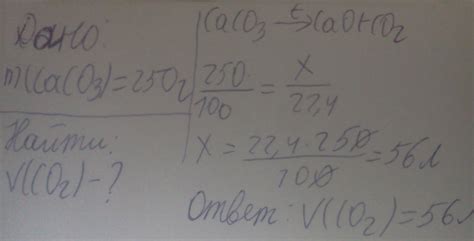 Дано:
m(CaCO3)=250г
Найти:
V(CO2)-?
CaCO3 t→ CaO+CO2
250/100 = x/22,4
X = 22,4·250/100 = 56л
Ответ: V(CO2)=56л